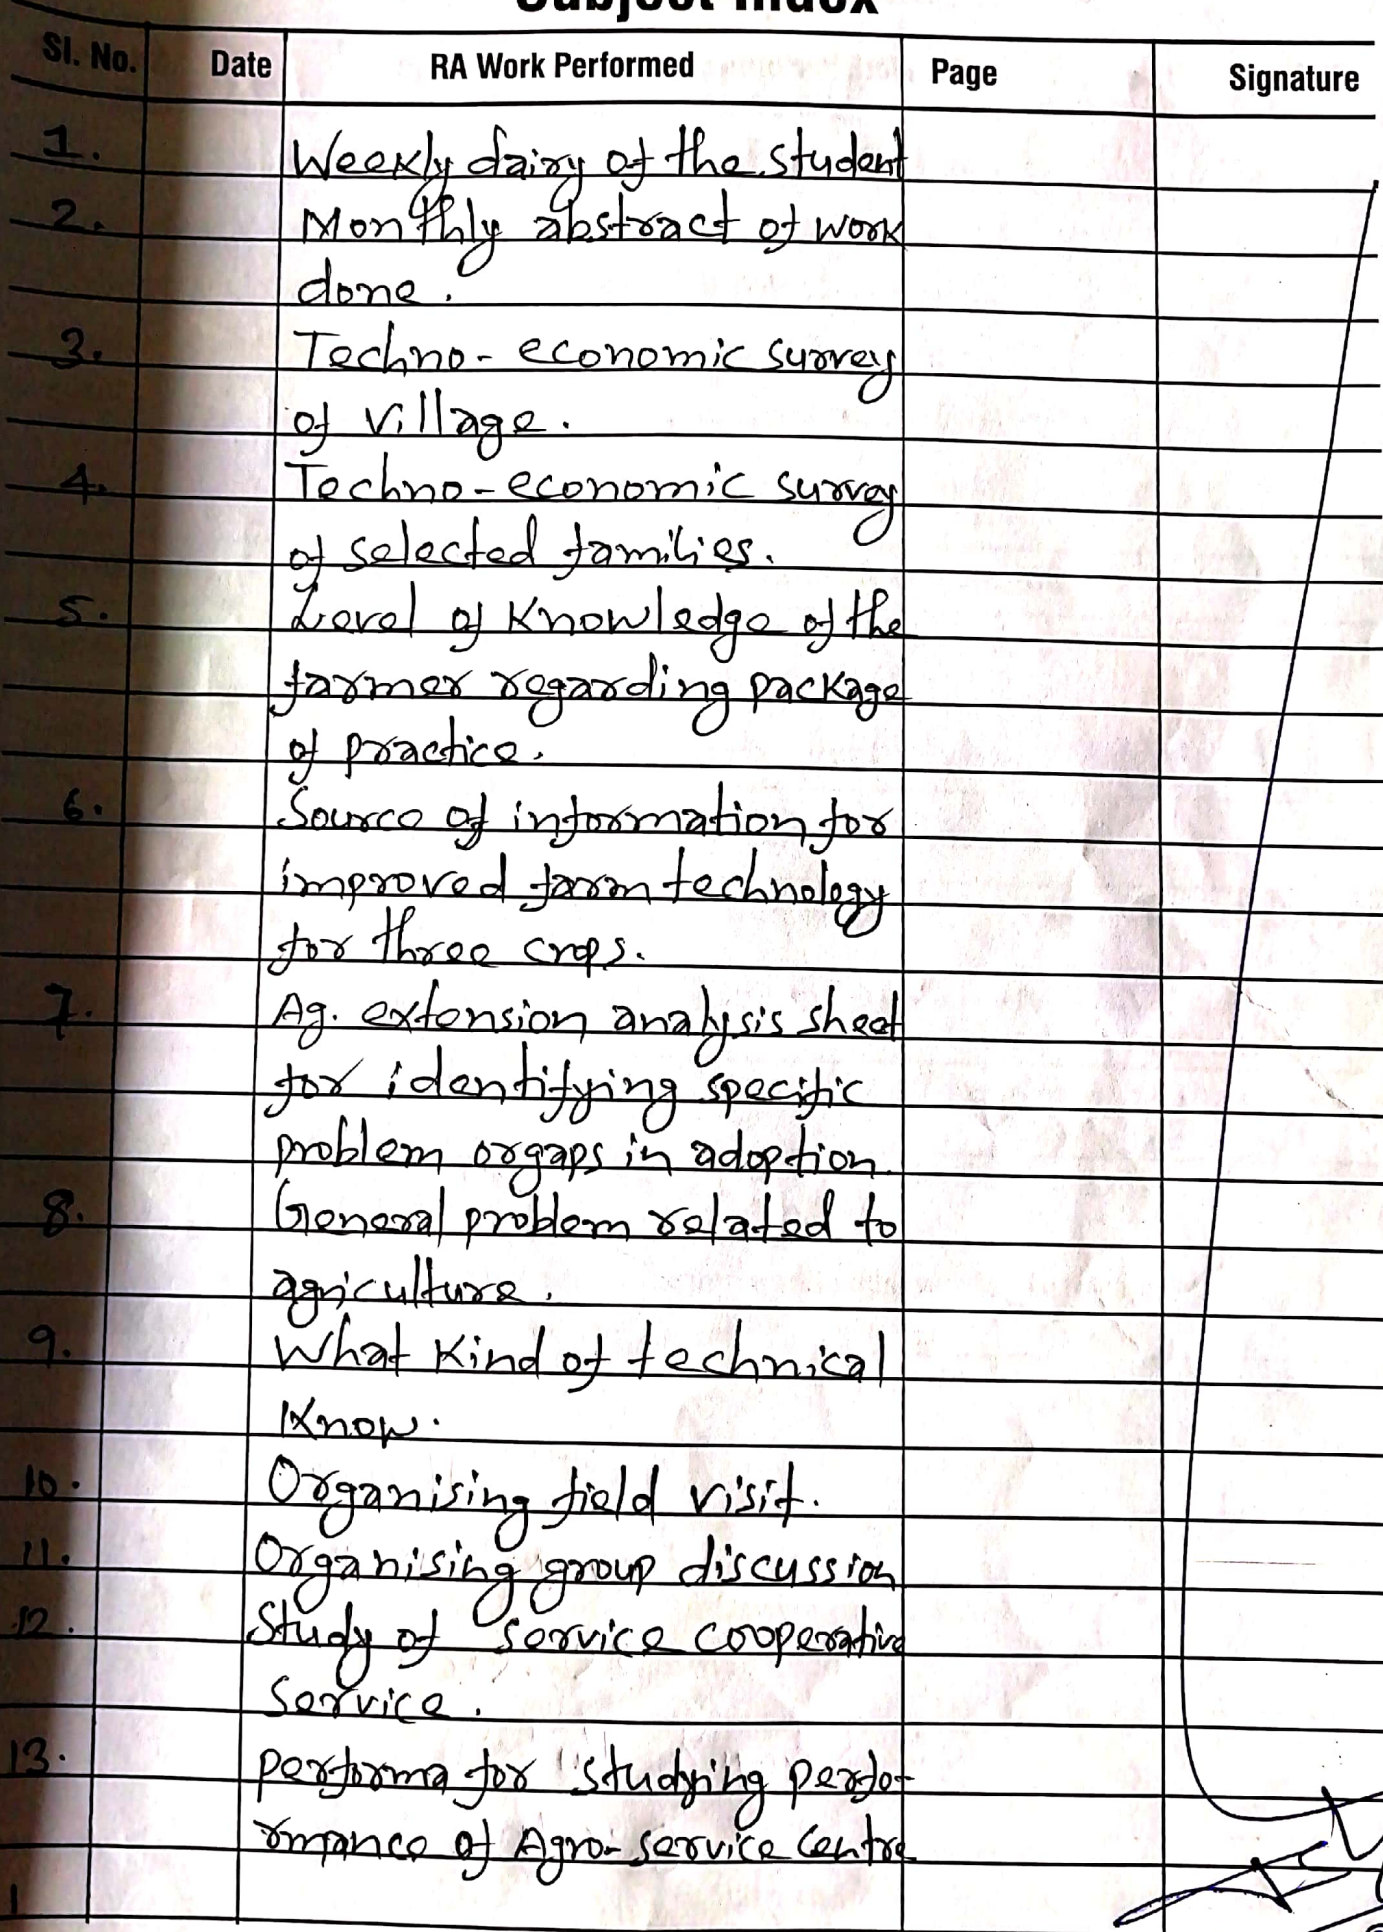 Subject Index
Sl. No. Date RA Work Performed Page Signature
1. Weekly dairy of the student
2. Monthly abstract of work
done.
3. Techno-economic survey
of village.
4. Techno-economic survey
of selected families.
5. Level of Knowledge of the
farmer regarding package
of practice.
6. Source of information for
improved farm technology
for three crops.
7. Ag. extension analysis sheet
for identifying specific
problem or gaps in adoption.
8. General problem related to
agriculture.
9. What Kind of technical
Know.
10. Organising field visit.
11. Organising group discussion
12. Study of service cooperative
Service.
13. performa for studying perfo-
rmance of Agro-service Centre